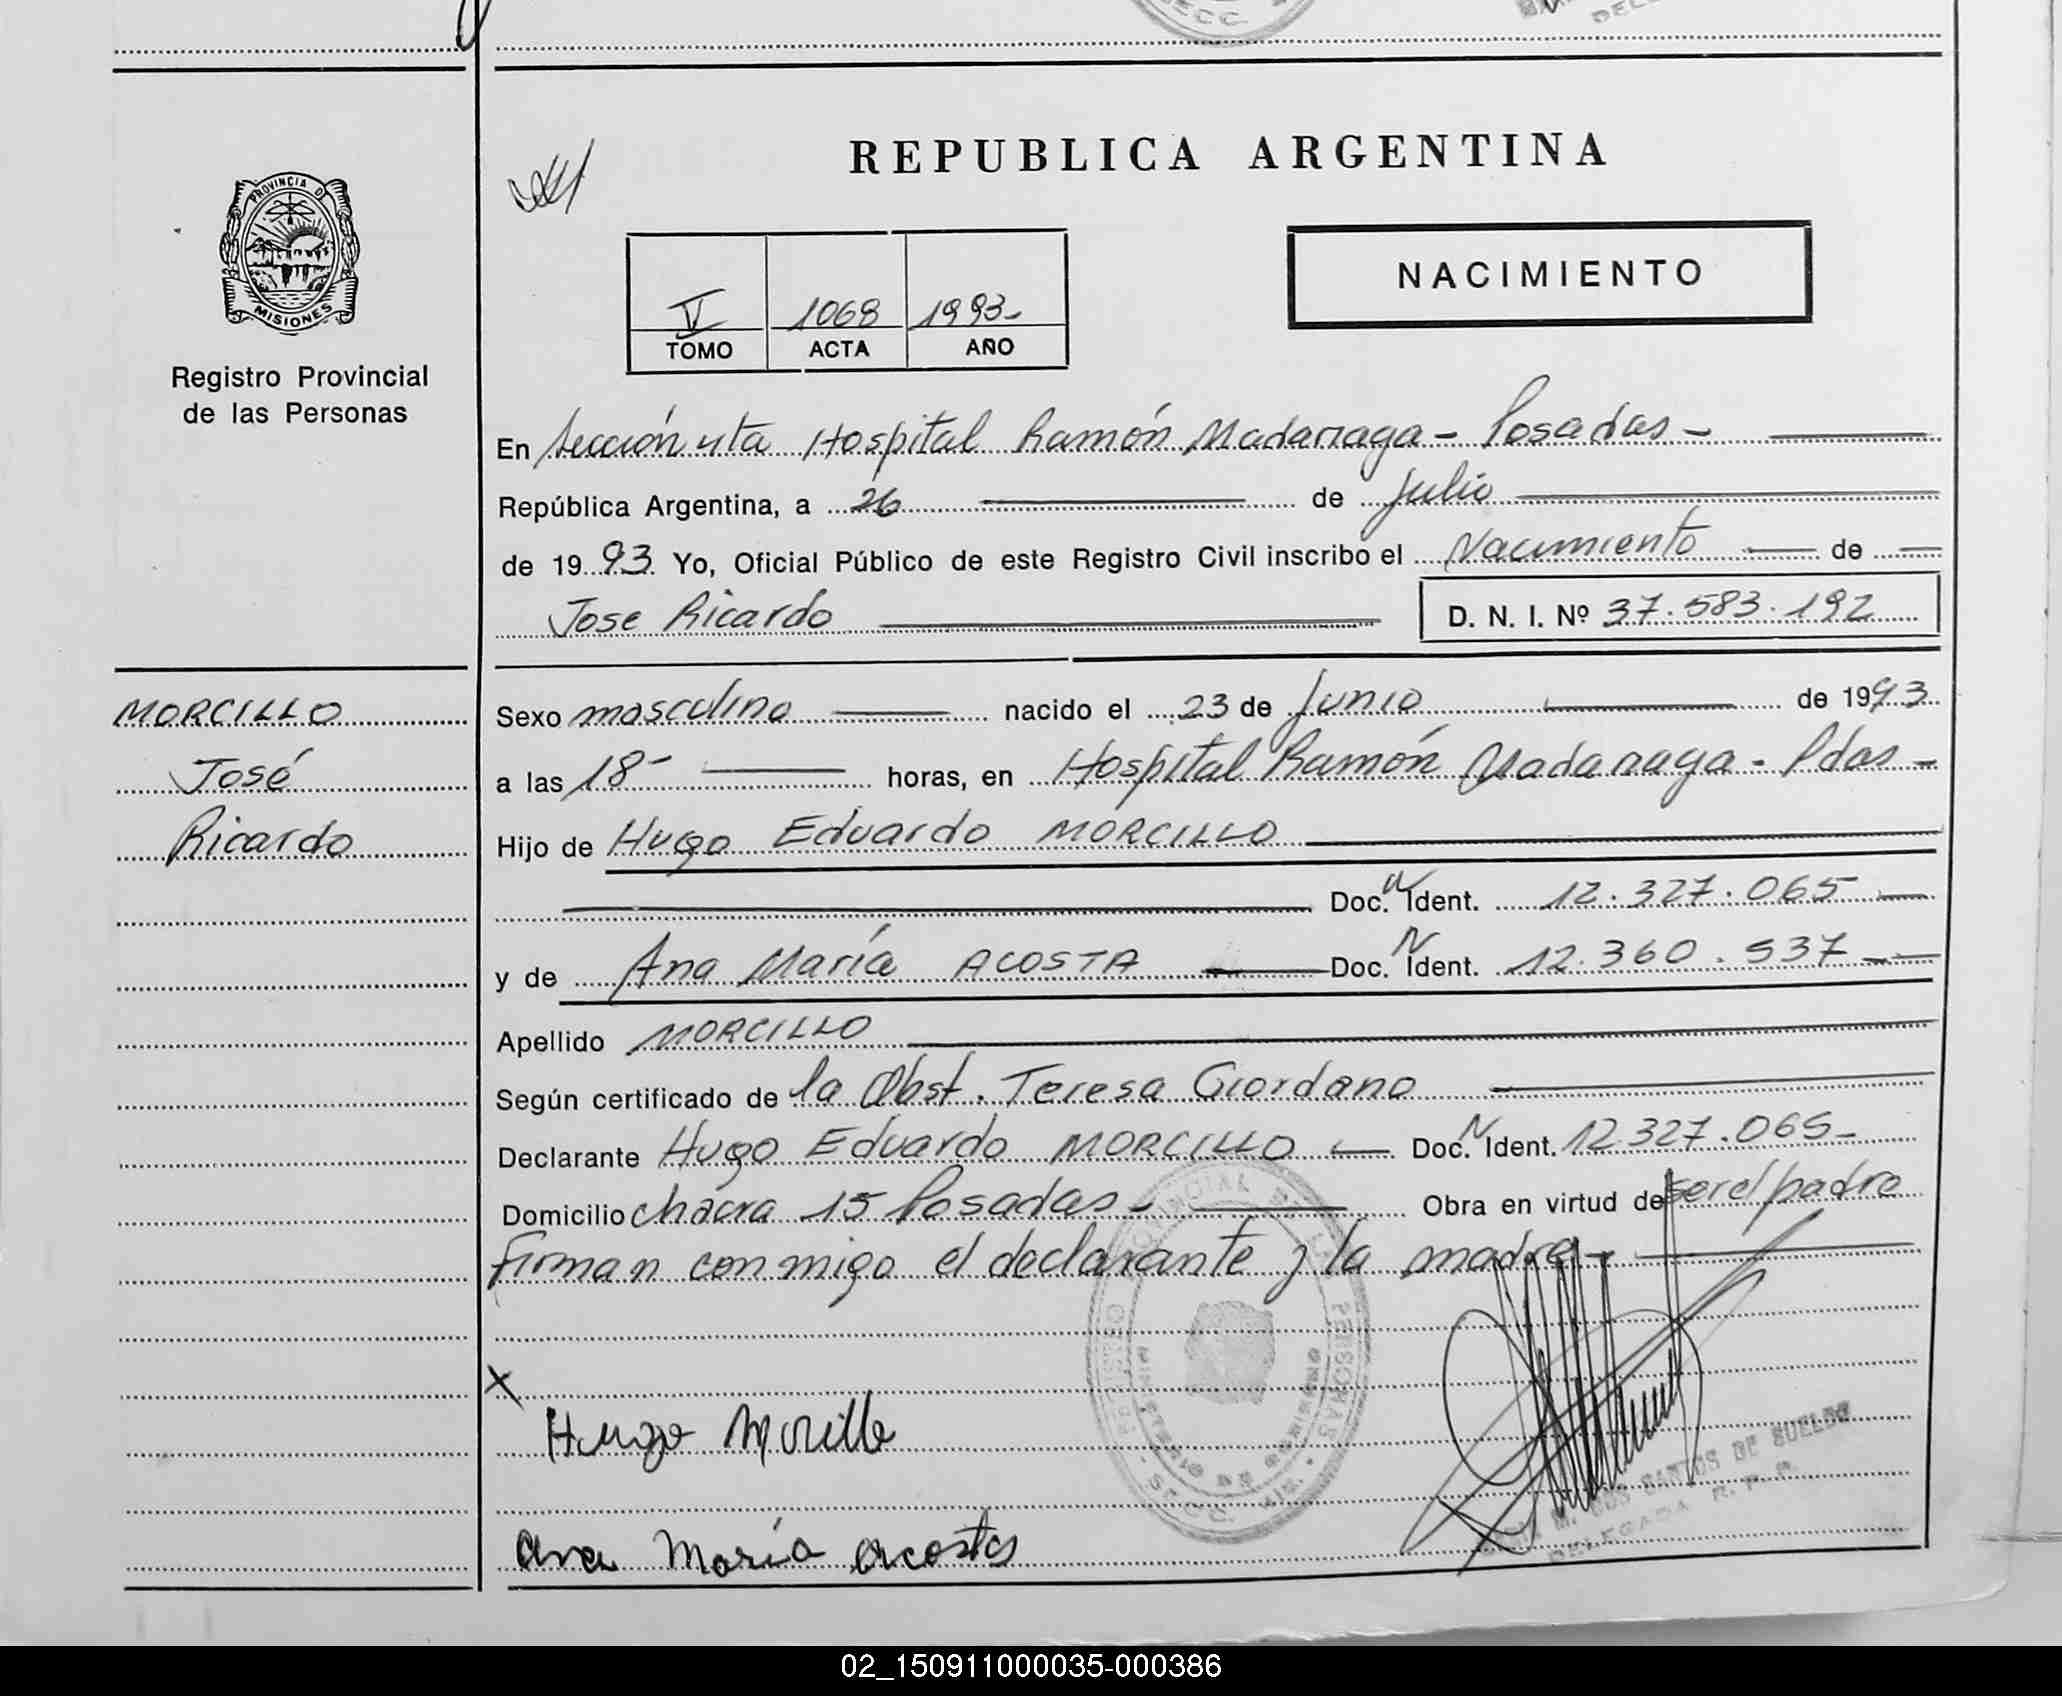 REPUBLICA ARGENTINA
PROVINCIA D
MISIONES
Registro Provincial
de las Personas
NACIMIENTO
V 1068 1993-
TOMO ACTA AÑO
En Sección 4ta Hospital Ramón Madariaga - Posadas -
República Argentina, a 26 de Julio
de 1993 Yo, Oficial Público de este Registro Civil inscribo el Nacimiento de
Jose Ricardo D. N. I. Nº 37.583.192
MORCILLO
José
Ricardo
Sexo masculino nacido el 23 de Junio de 1993
a las 18- horas, en Hospital Ramón Madariaga - Pdas -
Hijo de Hugo Eduardo MORCILLO
Doc. N Ident. 12.327.065
y de Ana María ACOSTA Doc. N Ident. 12.360.537
Apellido MORCILLO
Según certificado de la Obst. Teresa Giordano
Declarante Hugo Eduardo MORCILLO Doc. N Ident. 12327.065-
Domicilio chacra 15 Posadas - Obra en virtud de ser el padre
Firman conmigo el declarante y la madre-
X
Hugo Morcillo
Ana María Acosta
SANTOS DE SUELDO
DELEGADA R. P. P.
02_150911000035-000386